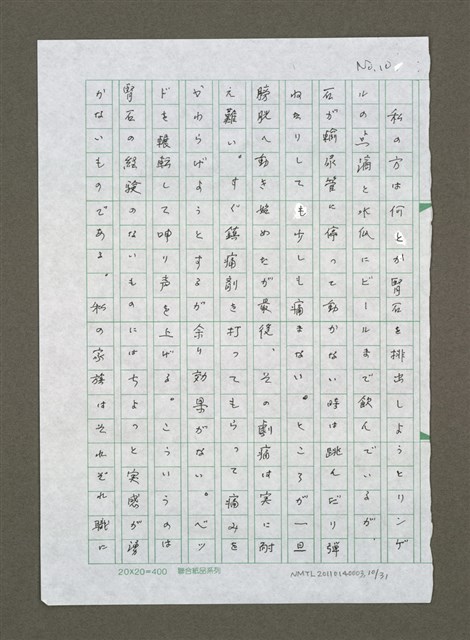 No.10
私の方は何とか腎石を排出しようとリンゲ
ルの点滴と水低にビールまで飲んでいるが、
石が輸尿管に停って動かない時は跳んだり弾
ねたりしても少しも痛まない。ところが一旦
膀胱へ動き始めたが最後、その劇痛は実に耐
え難い。すぐ鎮痛剤を打ってもらって痛みを
やわらげようとするが余り効果がない。ベッ
ドを輾転して呻り声を上げる。こういうのは
腎石の経験のないものにはちょっと実感が湧
かないものである。私の家族はそれぞれ職に
20X20=400 聯合紙品系列
NMTL20110140003,10/31